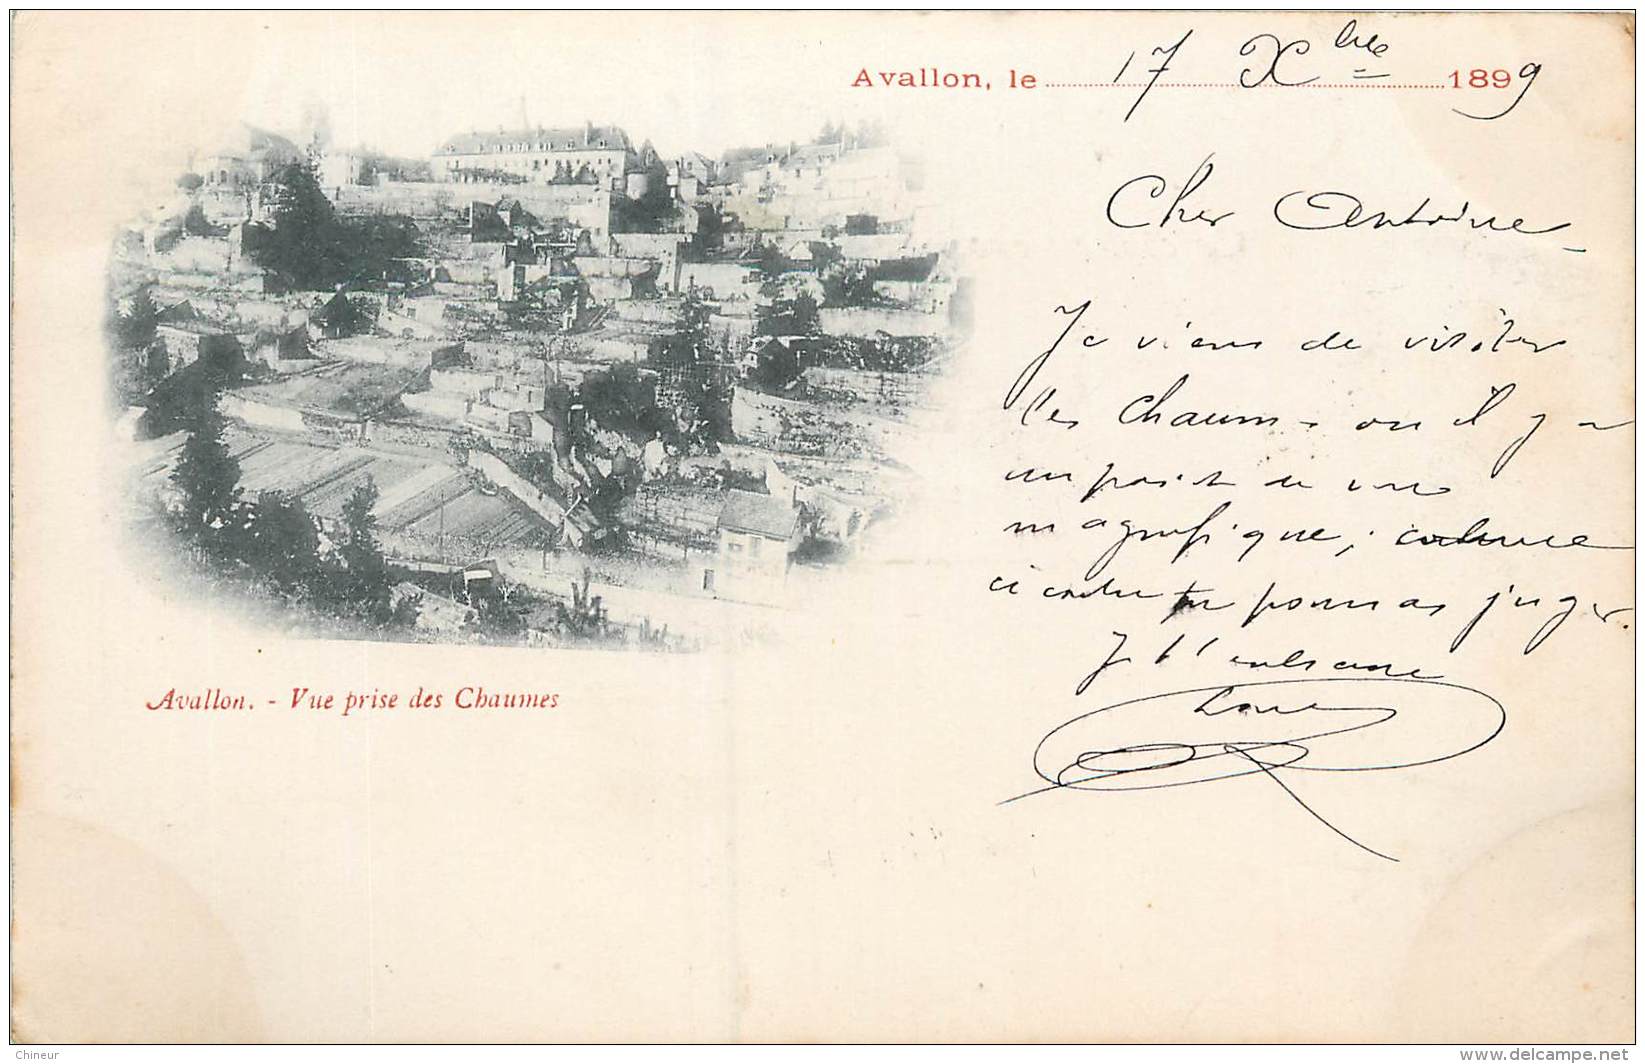 Avallon, le 17 Xbre 1899
Cher Antoine
Je viens de visiter
les Chaumes où il y a
un point de vue
magnifique;
ci contre tu pourras juger.
Je t'embrasse
Avallon. - Vue prise des Chaumes
Chineur
www.delcampe.net